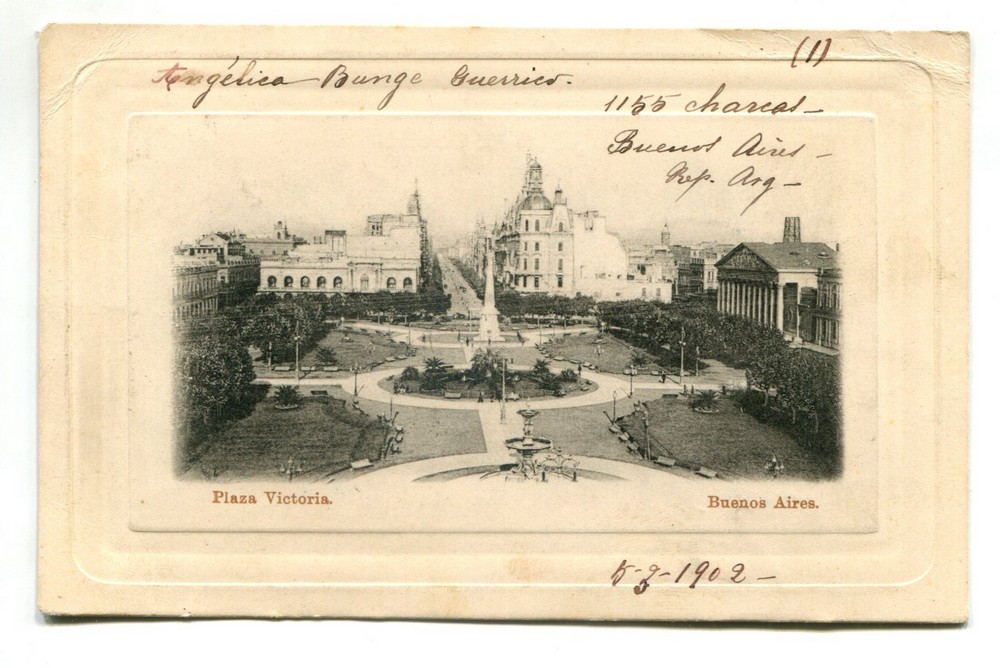 (1)
Angélica Bunge Guerrico.
1155 charcas -
Buenos Aires -
Rep. Arg -
Plaza Victoria.
Buenos Aires.
5-9-1902-